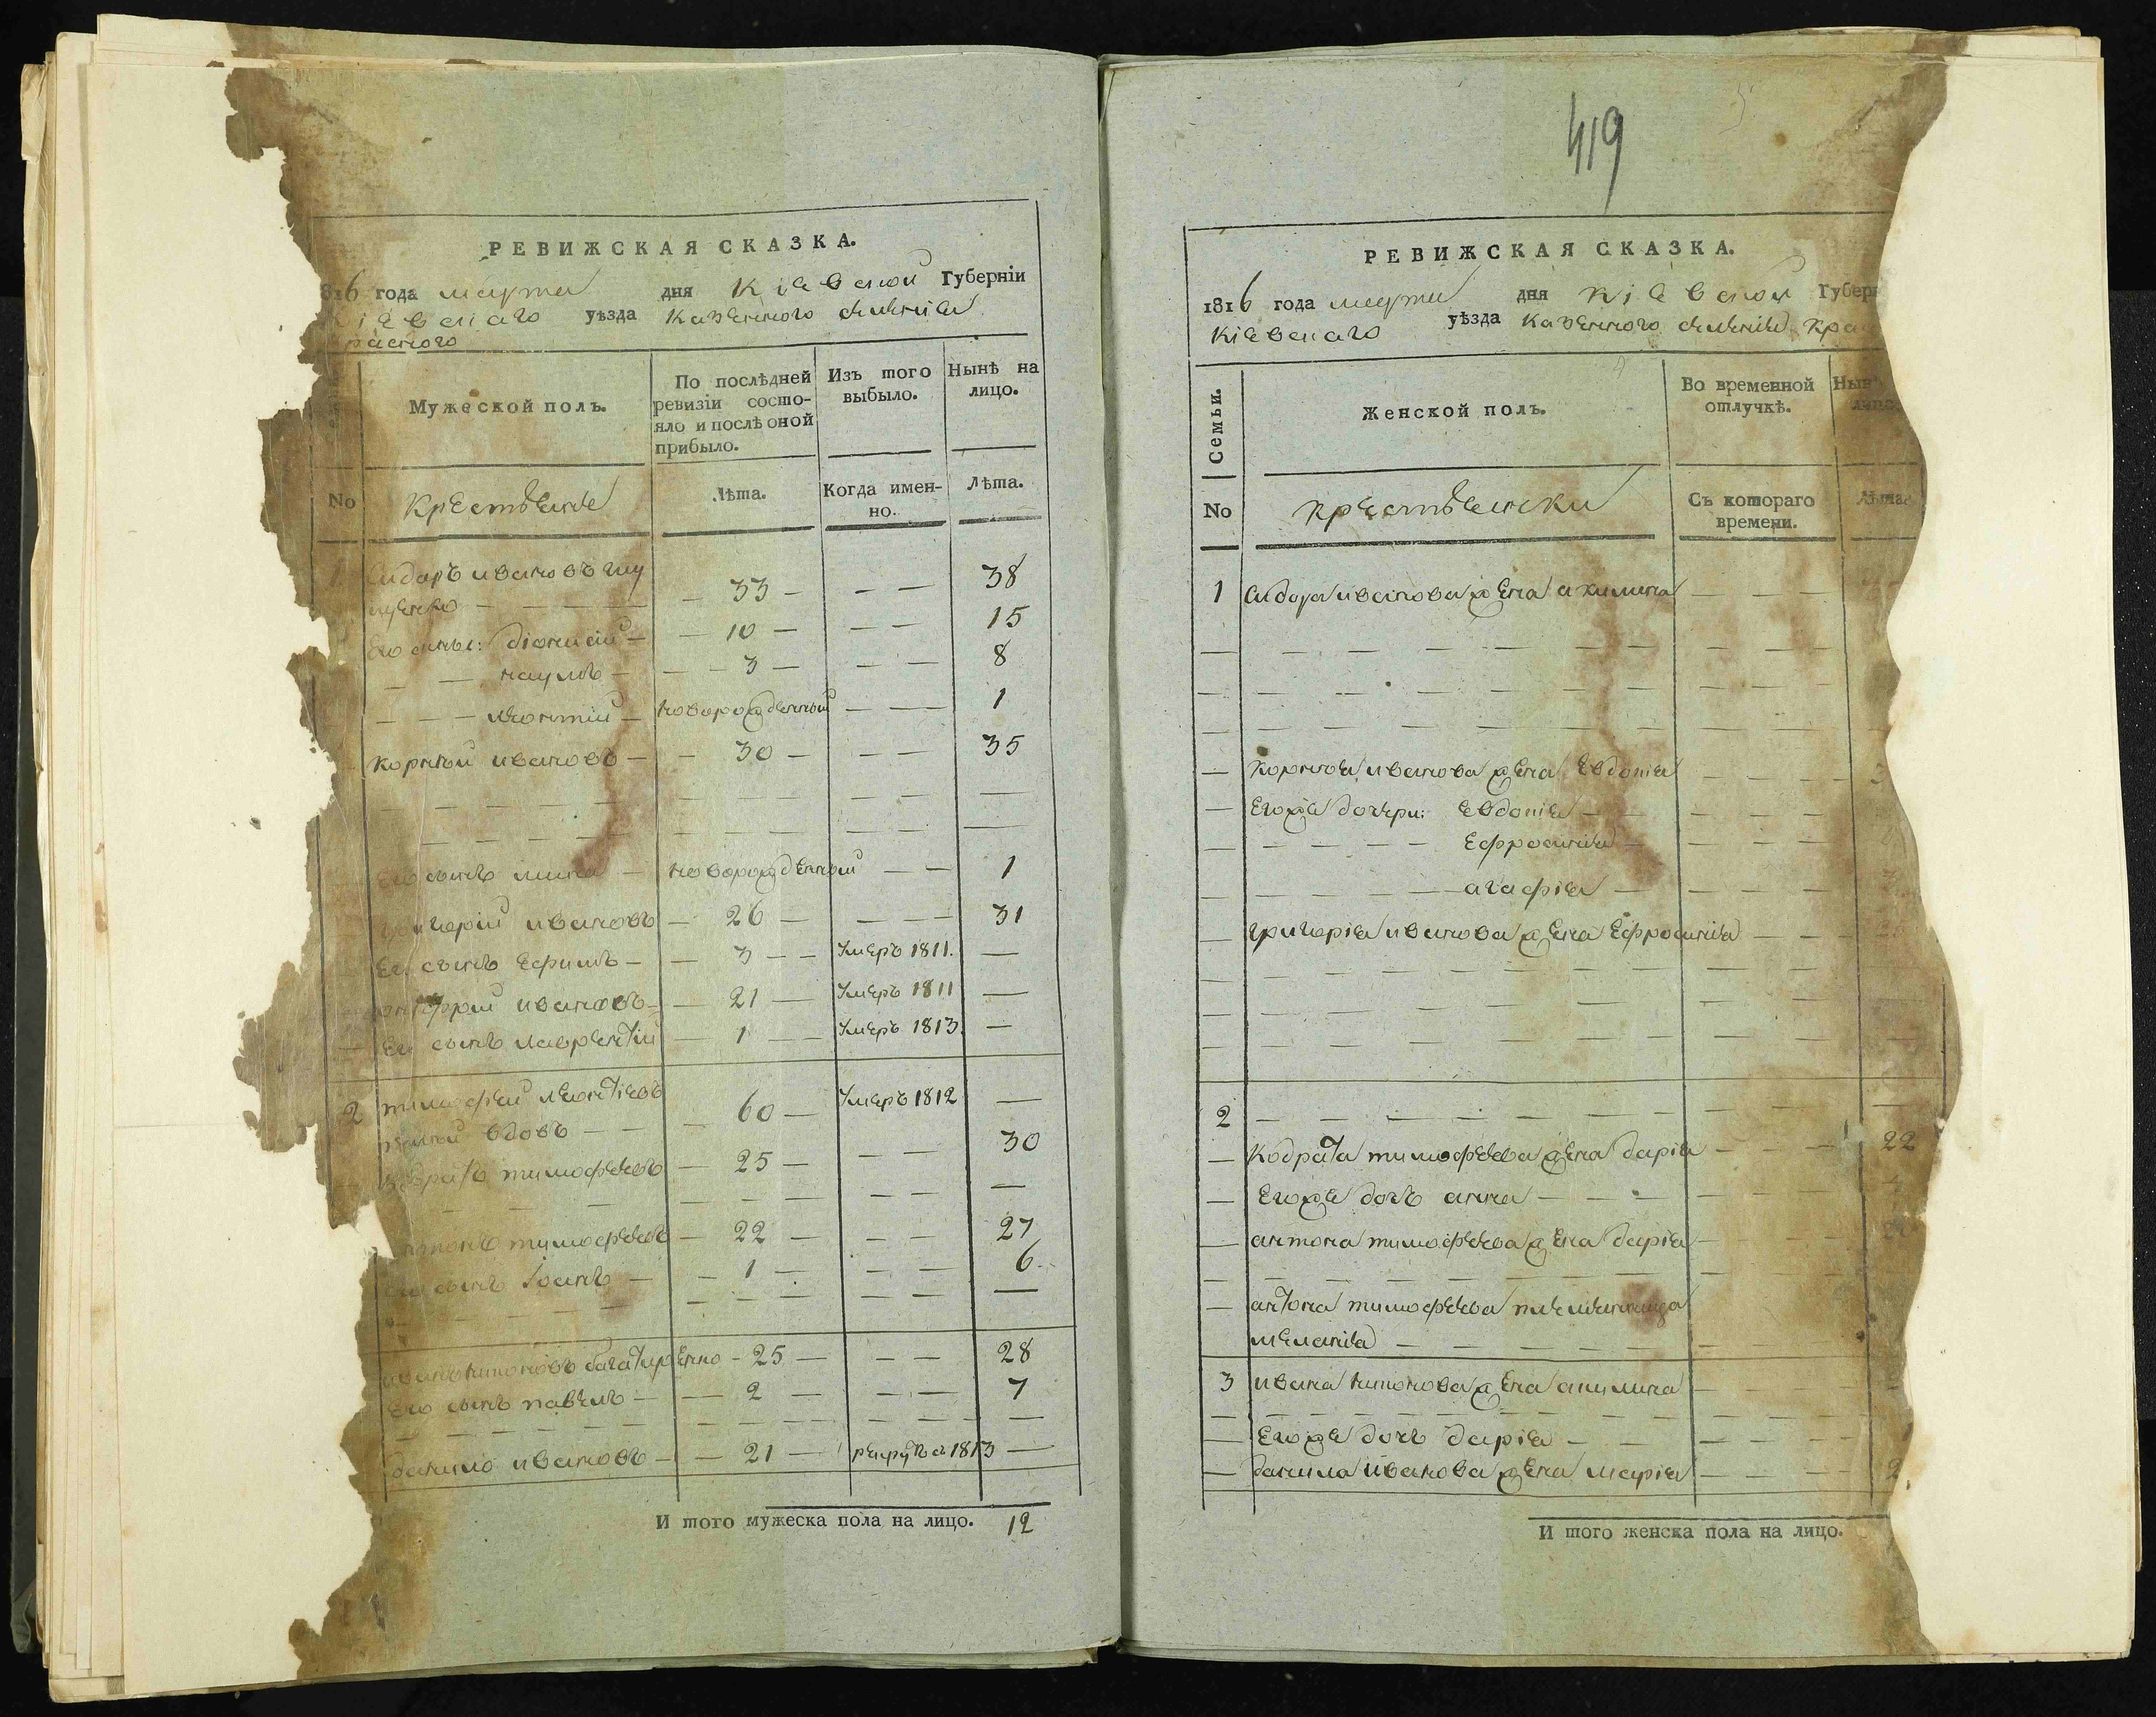 РЕВИЖСКАЯ СКАЗКА.
816 года марта дня Кіевской Губерніи
Кіевскаго уѣзда Казенного селенія
Красного
Мужеской полъ.
По послѣдней ревизіи состояло и послѣ оной прибыло.
Изъ того выбыло.
Нынѣ на лицо.
No
Крестьяне
Лѣта.
Когда именно.
Лѣта.
1 Сидоръ Ивановъ
— 33 — — — 38
Его сыны: Діонисій — — 10 — — — 15
— — Наумъ — — — 3 — — — 8
— — — Леонтій — новорожденный — — — 1
Корній Ивановъ — — 30 — — — 35
Его сынъ Мина — новорожденный — — 1
Григорій Ивановъ — 26 — — — — 31
Его сынъ Ефимъ — — 3 — — Умеръ 1811. —
Ивановъ — — 21 — Умеръ 1811 —
Его сынъ Лаврентій — 1 — — Умеръ 1813. —
2 Тимофей Леонтіевъ
вдовъ — — — 60 — Умеръ 1812 —
Кодратъ Тимофѣевъ — 25 — — — 30
— — — — — — — — —
Антонъ Тимофѣевъ — 22 — — — 27
Его сынъ Іоанъ — — 1 — — — 6
— — — — — — — — —
Иванъ багатиренко — 25 — — — 28
Его сынъ Павелъ — — 2 — — — 7
— — — — — — — — —
Данило Ивановъ — — 21 — 1813 —
И того мужеска пола на лицо. 12
419
РЕВИЖСКАЯ СКАЗКА.
1816 года марта дня Кіевской Губер
Кіевскаго уѣзда Казенного селенія Кра
Семьи.
Женской полъ.
Во временной отлучкѣ.
Нын
лицо.
No
Крестьянки
Съ котораго времени.
Лѣта
1 Сидора Иванова жена Акилина — — —
— Корнія Иванова жена Евдокія — — —
— Егоже дочери: Евдокія — — — —
— — — — — Ефросинія — — — —
— — — — — Агафія — — — —
— Григорія Иванова жена Ефросинія — —
2 — — — — — — — —
— Кодрата Тимофѣева жена Дарія — — — 22
— Егоже дочь Анна — — — —
— Антона Тимофѣева жена Дарія — — —
— Антона Тимофѣева племянница
Меланія — — — — — —
3 Ивана жена Акилина — — —
— Егоже дочь Дарія — — — —
— Данила Иванова жена Марія — — — 2
И того женска пола на лицо.